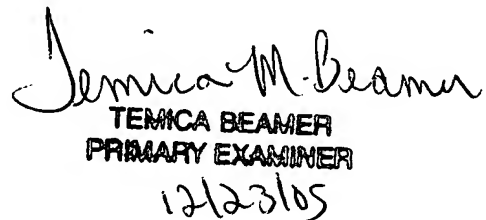 Temica M. Beamer
TEMICA BEAMER
PRIMARY EXAMINER
12/23/05